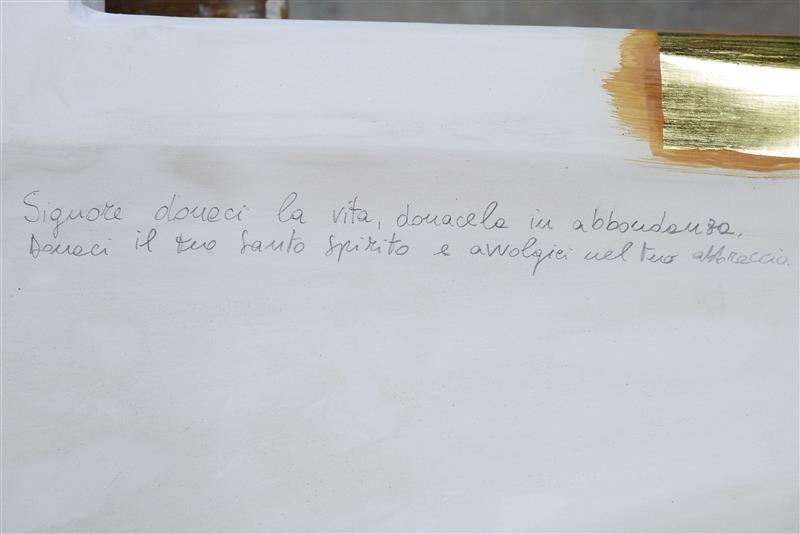 Signore donaci la vita, donacela in abbondanza.
Donaci il tuo Santo Spirito e avvolgici nel tuo abbraccio.